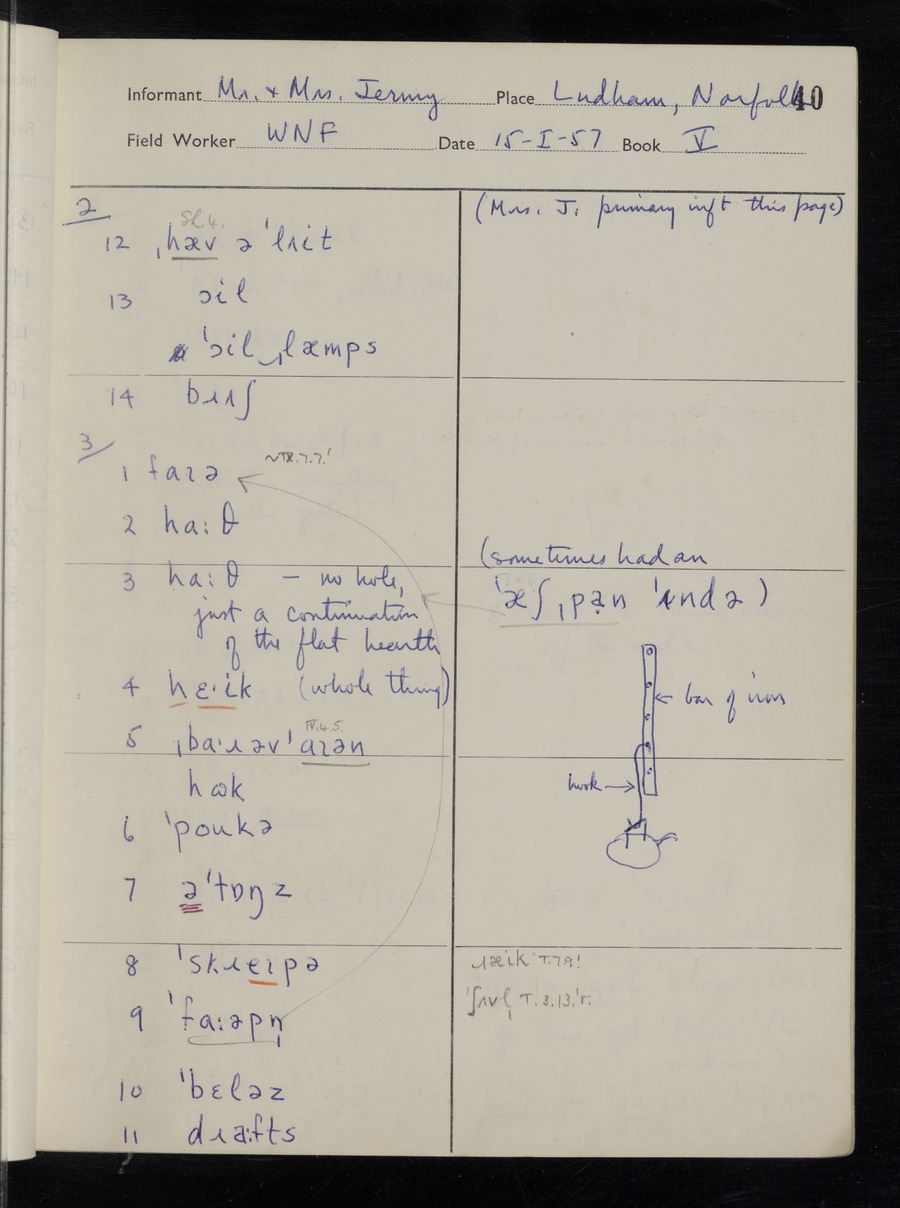 Informant Mr. + Mrs. Jermy Place Ludham, Norfolk 40
Field Worker WNF Date 15-I-57 Book V
2
(Mrs. J. primary inft this page)
12 ˌhæv ə ˈlɹit
13 ɔil
ˈɔil ˌlæmps
14 bɹɹʃ
3
1 faɪə ~IX.7.7.!
2 ha:θ
(sometimes had an
3 ha:θ – no hole,
just a continuation
of the flat hearth
ˈæʃ ˌpən ˈʌndə)
4 hɛ·ik (whole thing)
bar of iron
IV.4.5.
5 ˌba·ɹ əv ˈaɪən
hʊk
hook
6 ˈpoukə
7 ə ˈtɒŋz
8 ˈskɹɛɪpə
ɹæik T.7.9!
9 ˈfa:əpn̩
ˈʃʌvl̩ T.3.13.ˈr.
10 ˈbɛləz
11 dɹa:fts